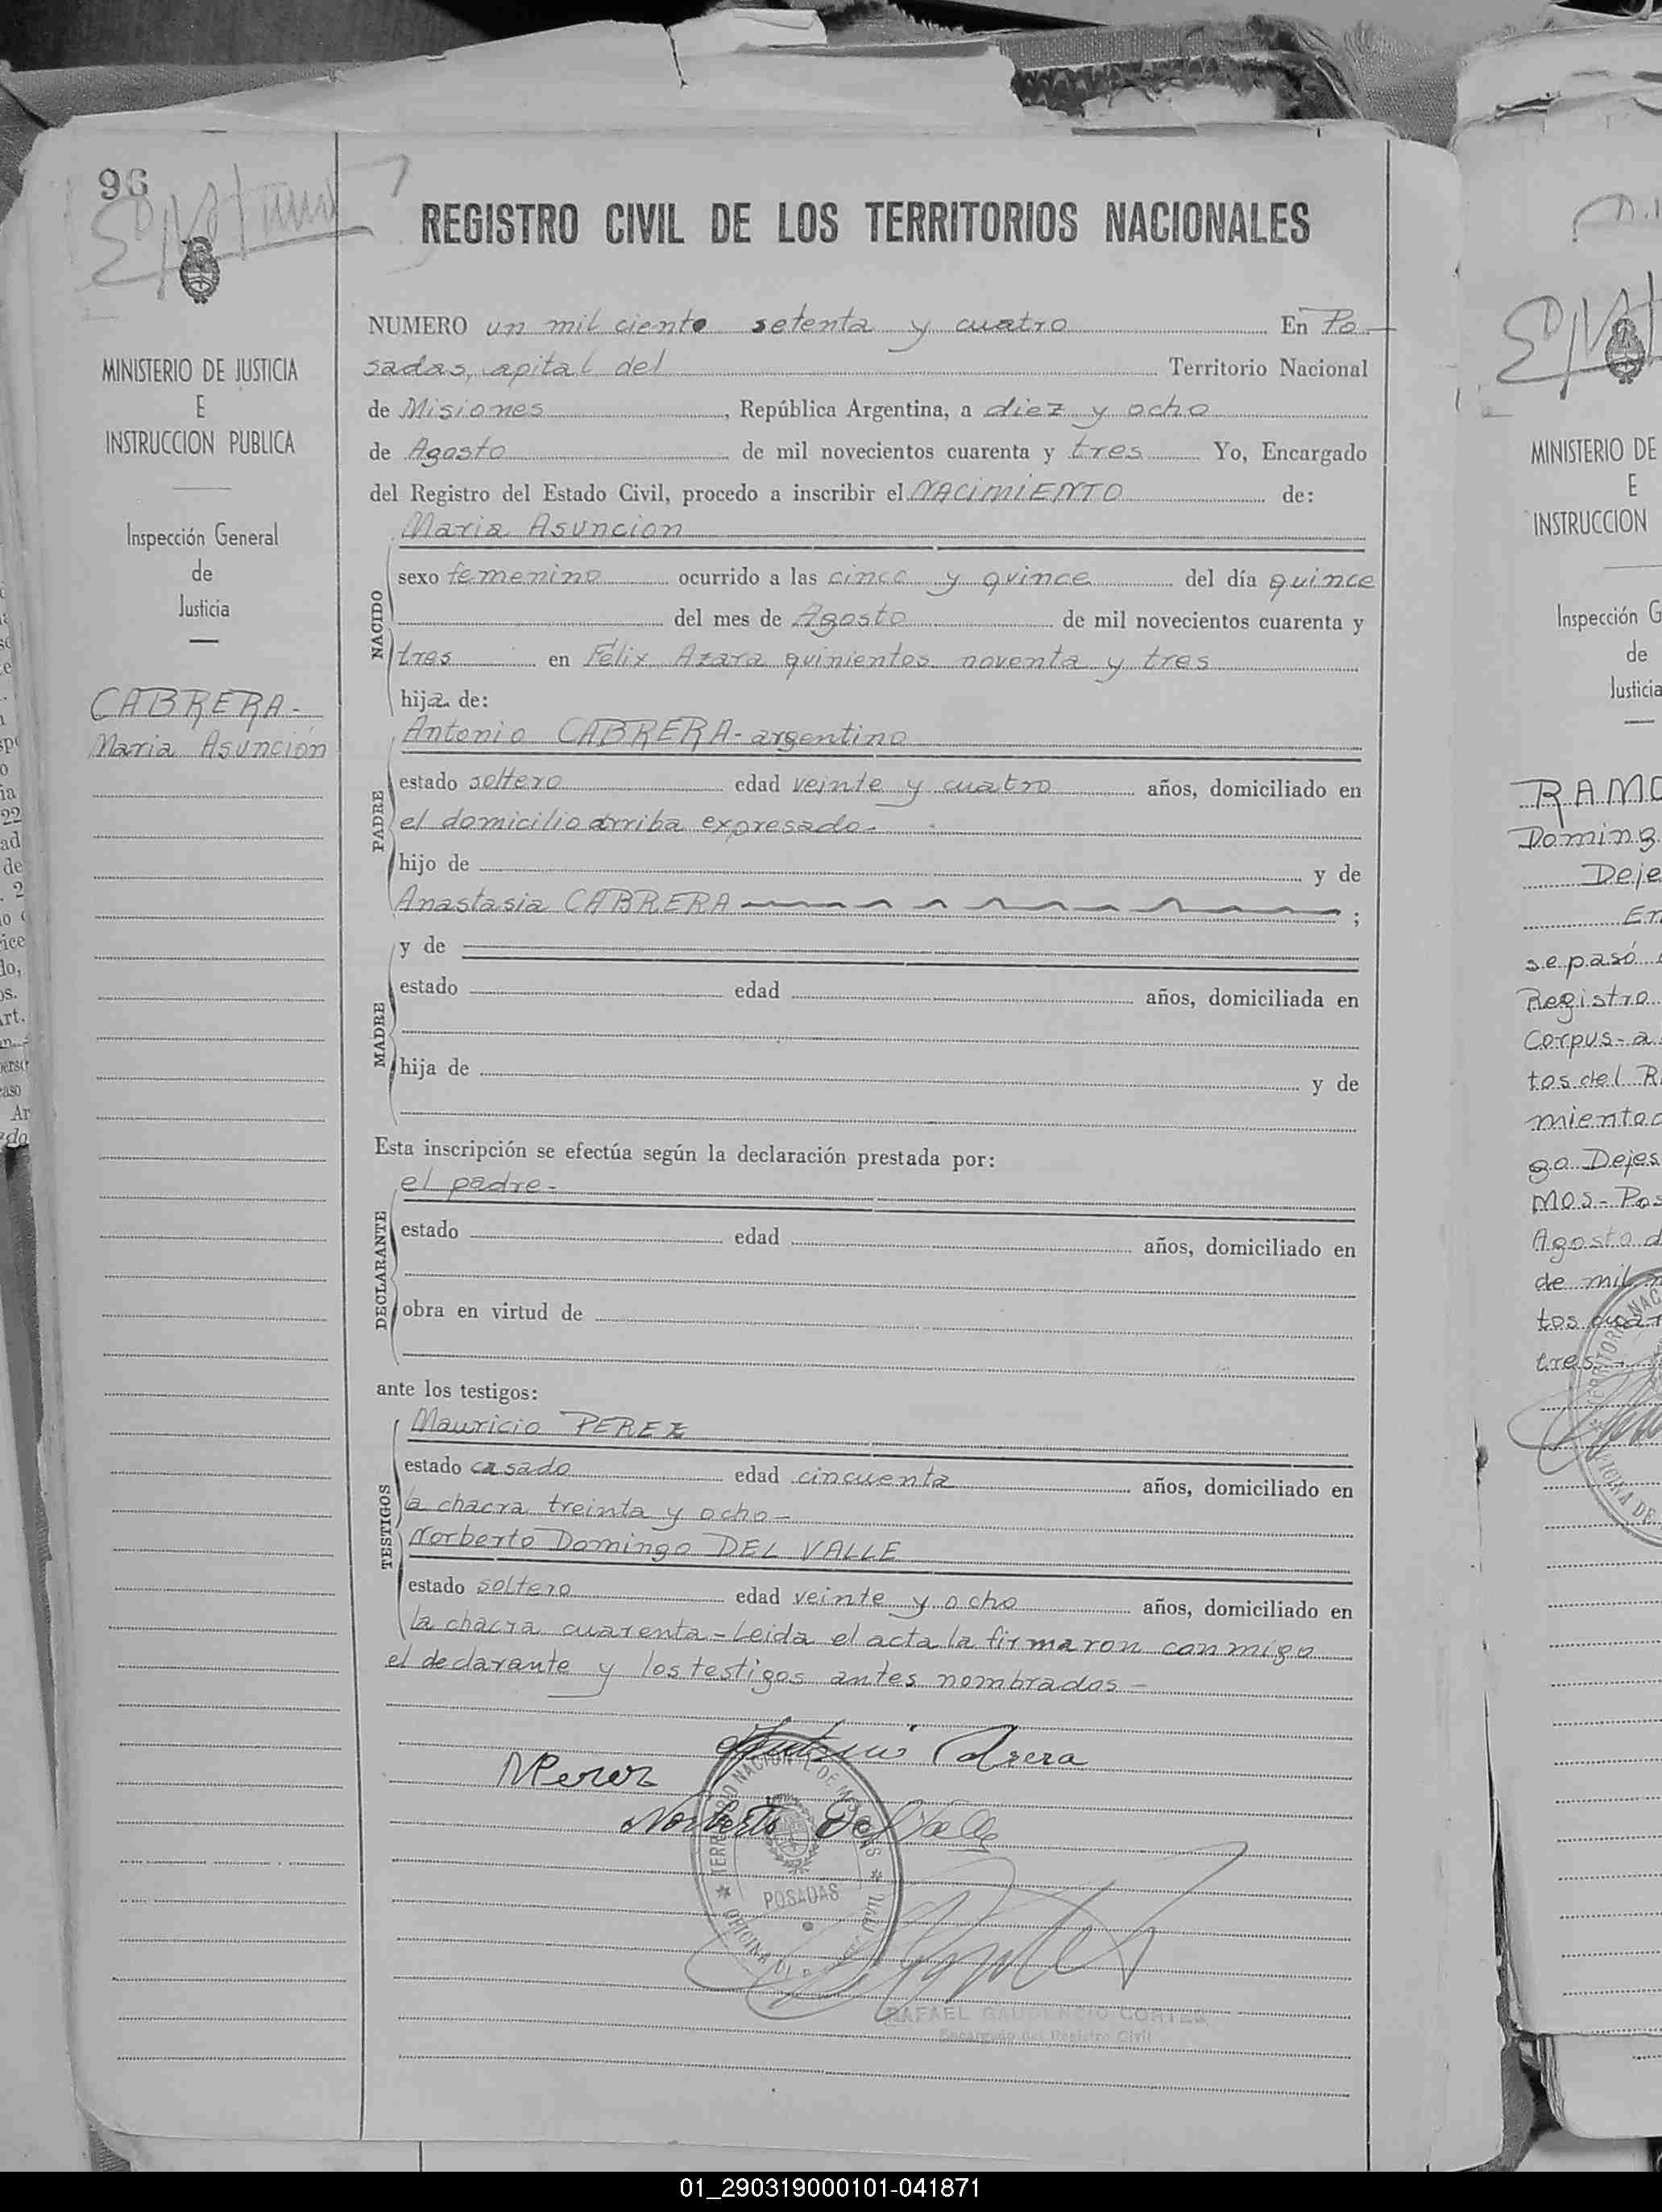 96
REGISTRO CIVIL DE LOS TERRITORIOS NACIONALES
MINISTERIO DE JUSTICIA
E
INSTRUCCION PUBLICA
Inspección General
de
Justicia
CABRERA-
Maria Asunción
NUMERO un mil ciento setenta y cuatro En Po
sadas, apital del Territorio Nacional
de Misiones, República Argentina, a diez y ocho
de Agosto de mil novecientos cuarenta y tres Yo, Encargado
del Registro del Estado Civil, procedo a inscribir el NACIMIENTO de:
Maria Asuncion
NACIDO
sexo femenino ocurrido a las cinco y quince del día quince
del mes de Agosto de mil novecientos cuarenta y
tres en Félix Azara quinientos noventa y tres
hija de:
Antonio CABRERA-argentino
PADRE
estado soltero edad veinte y cuatro años, domiciliado en
el domicilio arriba expresado-
hijo de y de
Anastasia CABRERA ;
y de
MADRE
estado edad años, domiciliada en
hija de y de
Esta inscripción se efectúa según la declaración prestada por:
el padre-
DECLARANTE
estado edad años, domiciliado en
obra en virtud de
ante los testigos:
Mauricio PEREZ
TESTIGOS
estado casado edad cincuenta años, domiciliado en
la chacra treinta y ocho-
Norberto Domingo DEL VALLE
estado soltero edad veinte y ocho años, domiciliado en
la chacra cuarenta-Leida el acta la firmaron conmigo
el declarante y los testigos antes nombrados-
Antonio Cabrera
MPerez
Norberto Del Valle
TERRITORIO NACIONAL DE MISIONES
POSADAS
RAFAEL GAUDENCIO CORTES
Encargado del Registro Civil
MINISTERIO DE
E
INSTRUCCION
Inspección G
de
Justicia
RAMO
Doming
Deje
En
se pasó
Registro
Corpus-a
tos del R
miento
go Dejes
mos-Pos
Agosto d
de mil n
tos cuar
tres
01_290319000101-041871